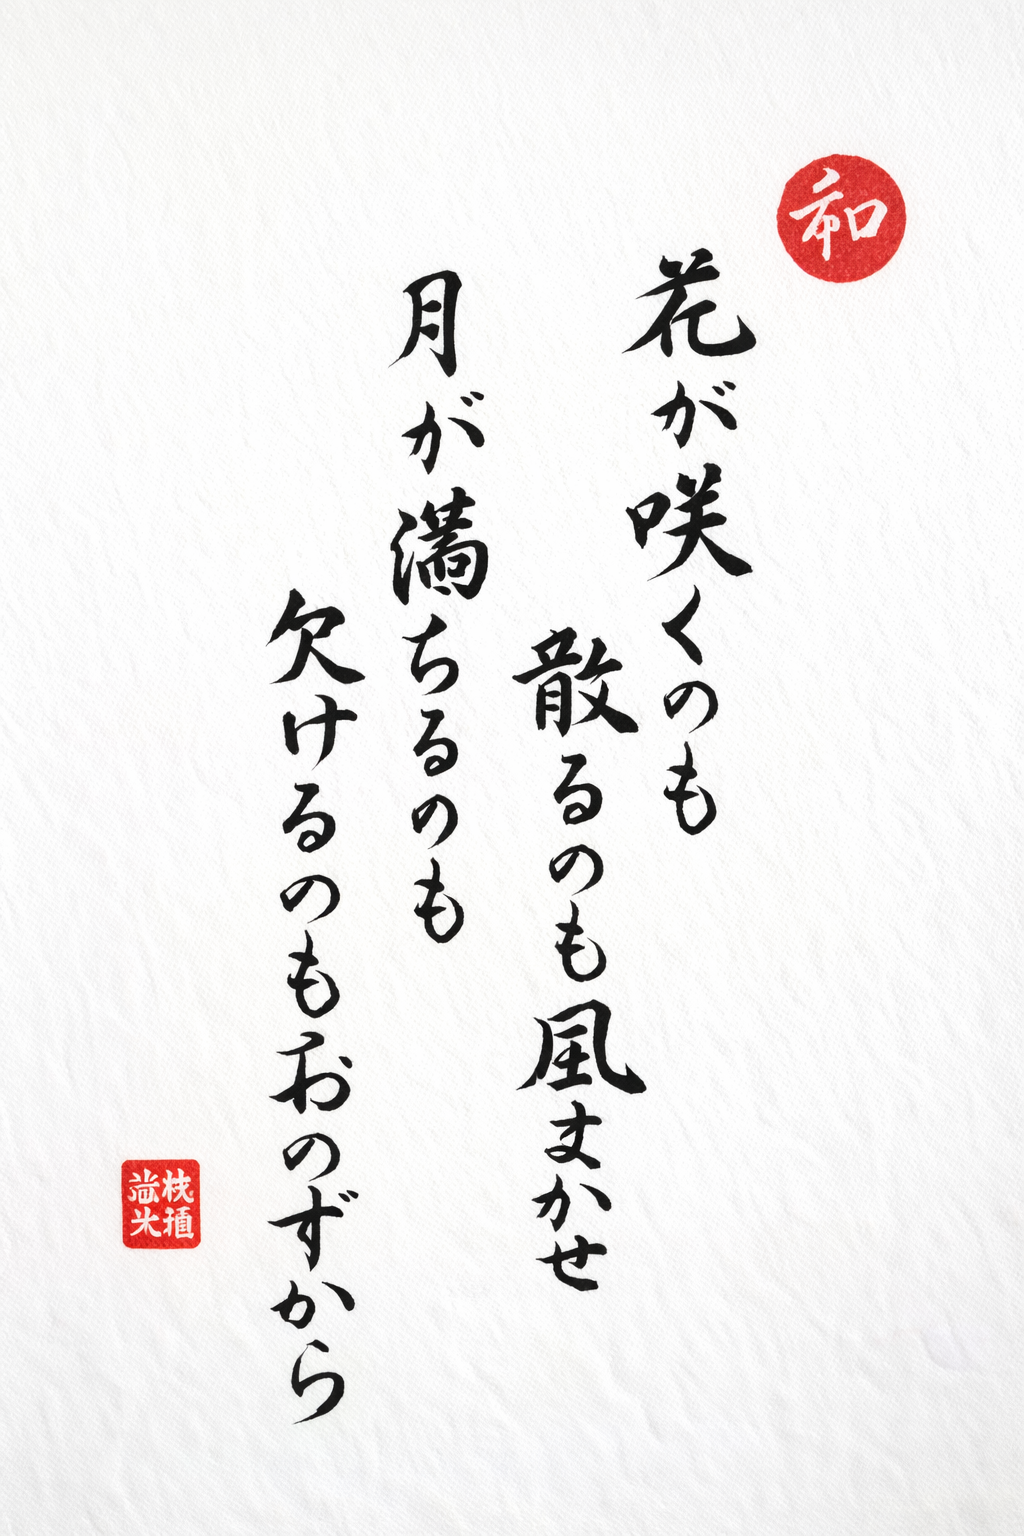 和
花が咲くのも
散るのも風まかせ
月が満ちるのも
欠けるのもおのずから